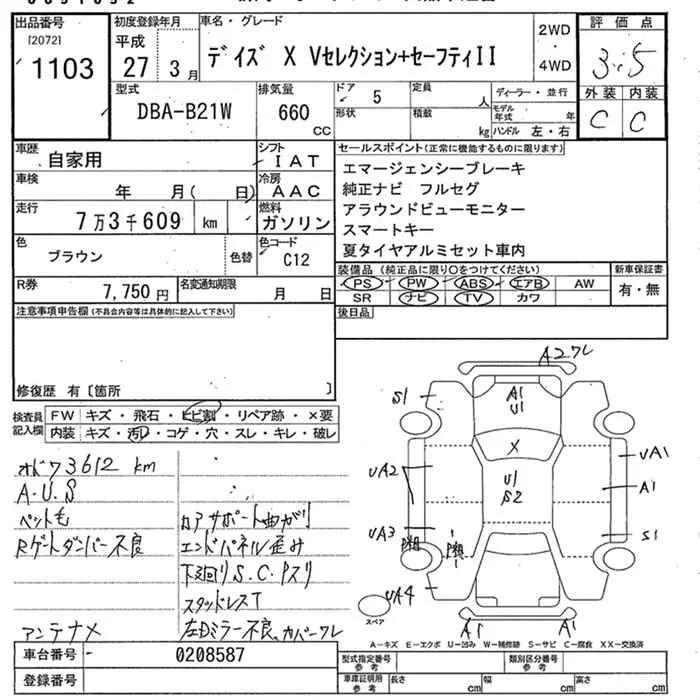 出品番号 初度登録年月 車名・グレード 2WD 評価点
[2072] 平成
1103 27 3月 デイズ X Vセレクション+セーフティII ・ 3.5
4WD
型式 排気量 ドア 5 定員 人 ディーラー・並行 外装 内装
DBA-B21W 660 CC 形状 積載 kg モデル年式 年 C C
ハンドル 左・右
車歴 自家用 シフト IAT セールスポイント(正常に機能するものに限ります)
車検 年 月( 日) 冷房 AAC エマージェンシーブレーキ
走行 7万3千609 km 燃料 ガソリン 純正ナビ フルセグ
アラウンドビューモニター
スマートキー
色 ブラウン 色替 色コード C12 夏タイヤアルミセット車内
装備品(純正品に限り○をつけてください) 新車保証書
R券 7,750円 名変通知期限 月 日 PS PW ABS エアB AW 有・無
SR ナビ TV カワ
注意事項申告欄(不具合内容等は具体的に記入して下さい) 後日品
修復歴 有〔箇所 〕
検査員記入欄 FW キズ・飛石・ヒビ割・リペア跡・×要
内装 キズ・汚れ・コゲ・穴・スレ・キレ・破レ
A2ワレ
S1 A1 U1
X
UA2 U1 S2 UA1
A1
UA3 S1
UA4
A1 A1
スペア
オドメ3612km
A.U.S
ペット毛 カアサポート曲がり
Rゲートダンパー不良 エンドパネル歪み
下廻りS.C.Pスリ
スタッドレスT
アンテナメ 左Dミラー不良、カバーワレ
A－キズ E－エクボ U－凹み W－補修跡 S－サビ C－腐食 XX－交換済
車台番号 - 0208587 型式指定番号 参考 類別区分番号 参考
登録番号 車庫証明用 参考 長さ cm 幅 cm 高さ cm